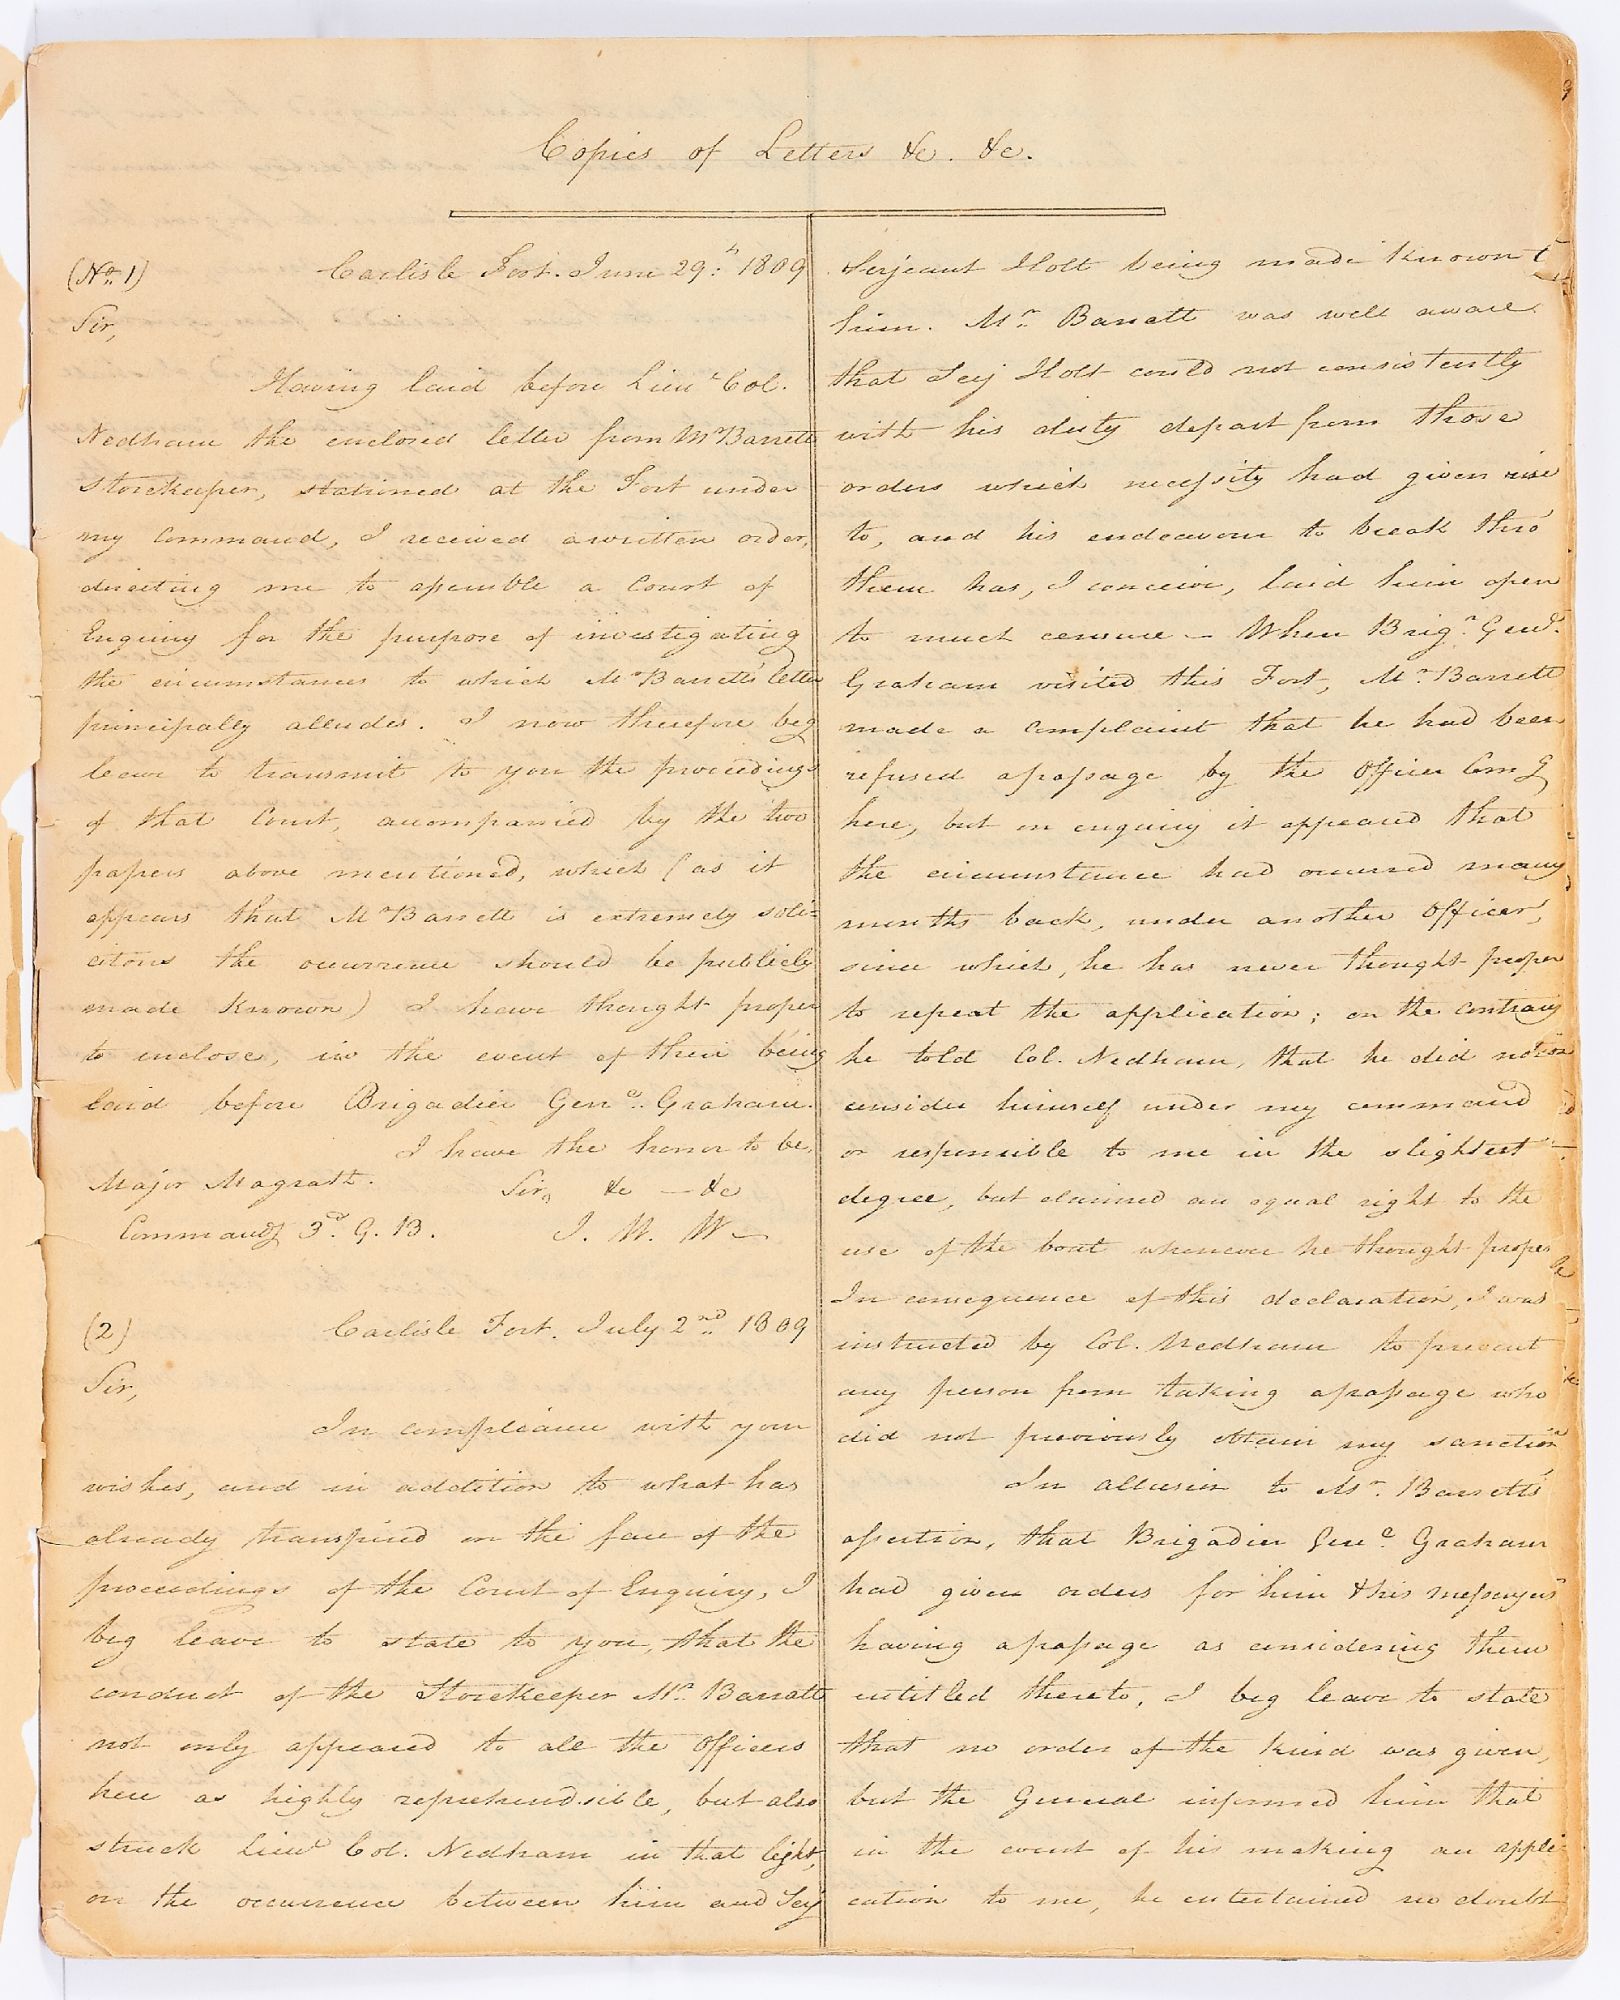 Copies of Letters &c. &c.
(No. 1) Carlisle Fort. June 29th 1809
Sir,
Having laid before Lieut Col.
Nedham the enclosed letter from Mr Barrett
Storekeeper, stationed at the Fort under
my Command, I received a written order,
directing me to assemble a Court of
Enquiry for the purpose of investigating
the circumstances to which Mr Barrett's letter
principally alludes. I now therefore beg
leave to transmit to you the proceedings
of that Court, accompanied by the two
papers above mentioned, which (as it
appears that Mr Barrett is extremely soli=
citous the occurrence should be publicly
made known) I have thought proper
to inclose, in the event of their being
laid before Brigadier Genl. Graham.
I have the honor to be,
Major Magrath. Sir, &c — &c
Commandg 3rd. G. B. J. W. W—
(2) Carlisle Fort. July 2nd 1809
Sir,
In compliance with your
wishes, and in addition to what has
already transpired on the face of the
proceedings of the Court of Enquiry, I
beg leave to state to you, that the
conduct of the Storekeeper Mr. Barratt
not only appeared to all the Officers
here as highly reprehendsible, but also
struck Lieut Col. Nedham in that light,
on the occurrence between him and Serj
Serjeant Holt being made known to
him. Mr. Barratt was well aware
that Serj Holt could not consistently
with his duty depart from those
orders which necessity had given rise
to, and his endeavour to break thro'
them has, I conceive, laid him open
to much censure — When Brigr. Genl.
Graham visited this Fort, Mr. Barrett
made a complaint that he had been
refused a passage by the Officer Comg
here, but on enquiry it appeared that
the circumstance had occurred many
months back, under another Officer,
since which, he has never thought proper
to repeat the application; on the contrary
he told Col. Nedham, that he did not
consider himself under my command
or responsible to me in the slightest
degree, but claimed an equal right to the
use of the boat whenever he thought proper
In consequence of this declaration, I was
instructed by Col. Nedham to prevent
any person from taking a passage who
did not previously obtain my sanction
In allusion to Mr. Barrett's
assertion, that Brigadier Genl. Graham
had given orders for him & his messengers
having a passage as considering them
entitled thereto, I beg leave to state
that no order of the kind was given,
but the General informed him that
in the event of his making an appli=
cation to me, he entertained no doubt